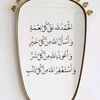 الحمد لله على كل نعمة
وأسأل الله من كل خير
وأعوذ بالله من كل شر
وأستغفر الله من كل ذنب